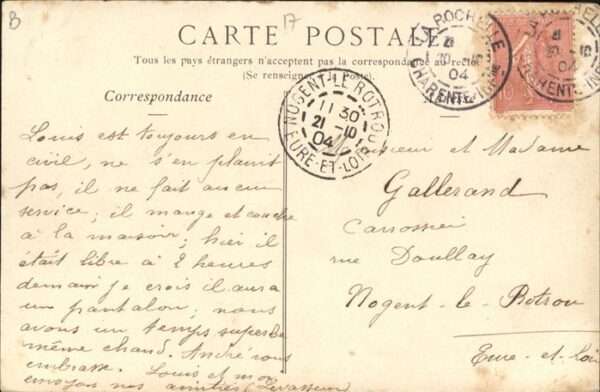 B
17
CARTE POSTALE
Tous les pays étrangers n'acceptent pas la correspondance au recto
(Se renseigner à la Poste).
Correspondance
LA ROCHELLE
20 10
04
CHARENTE-INFRE
LA ROCHELLE
20 10
04
CHARENTE-INF
NOGENT-LE-ROTROU
11 30
21 10
04
EURE-ET-LOIR
Louis est toujours en
civil, ne s'en plaint
pas, il ne fait aucun
service; il mange et couche
à la maison; hier il
était libre à 2 heures
demain je crois il aura
un pantalon; nous
avons un temps superbe
même chaud. André vous
embrasse. Louis et moi
envoyons nos amitiés Levasseur
Monsieur et Madame
Gallerand
Carrossier
rue Doullay
Nogent-le-Rotrou
Eure et Loir